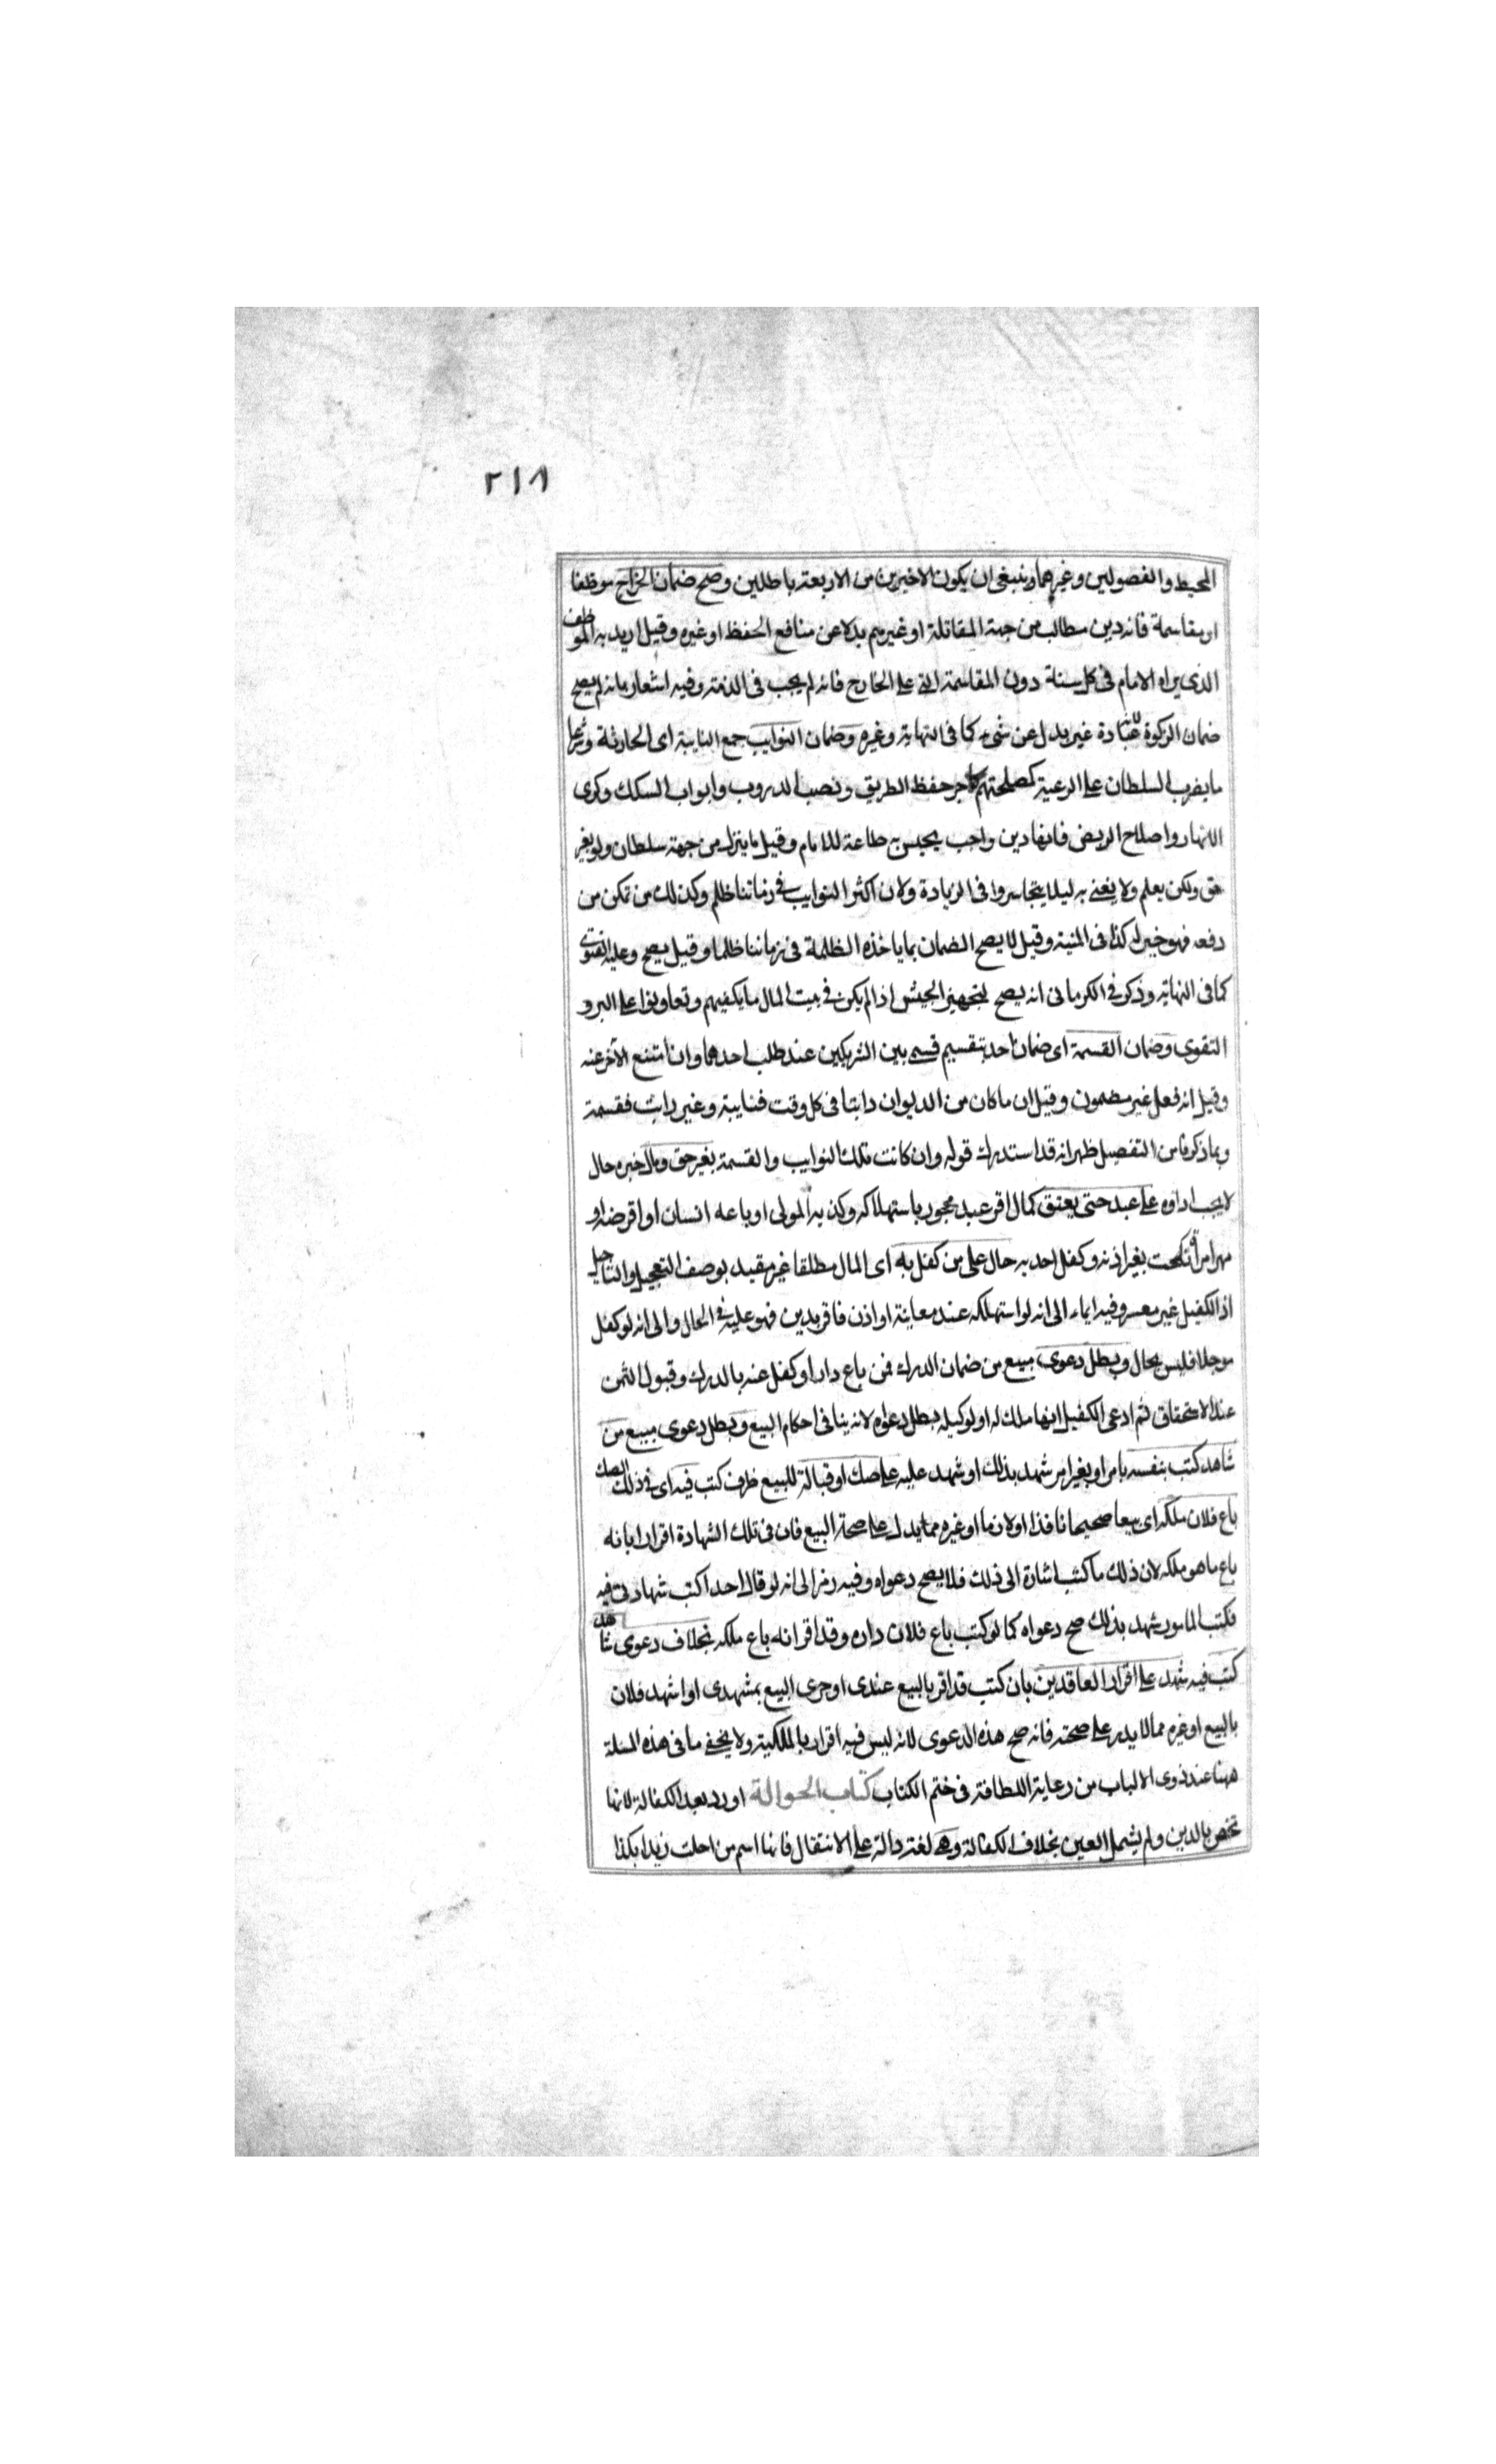 ٢١٨
المحيط والفصولين وغيرهما وينبغى ان يكون الاخيرين من الاربعة باطلين وصح ضمان الخراج موظفا
او مقاسمة فانه دين مطالب من جهة المقاتلة او غيرهم بدلا عن منافع الحفظ او غيره وقيل اريد به الموظف
الذى يراه الامام فى كل سنة دون المقاسمة التى على الخارج فانه لم يجب فى الذمة وفيه اشعار بانه لم يصح
ضمان الزكوة لانها عبادة غير بدل عن شىء كما فى النهاية وغيره وضمان النوايب جمع النايبة اى الحادثة وشرعا
ما يضرب السلطان على الرعية كمصلحتهم كاجر حفظ الطريق ونصب الدروب وابواب السكك وكرى
الانهار واصلاح الربض فانها دين واجب يحبس به طاعة للامام وقيل ما ينزل من جهة سلطان ولو بغير
حق ولكن يعلم ولا يفتى به ليلا يتجاسروا فى الزيادة ولان اكثر النوايب فى زماننا ظلم وكذلك من تمكن من
دفعه فهو خير له كذا فى المنية وقيل لا يصح الضمان بما ياخذه الظلمة فى زماننا ظلما وقيل يصح وعليه الفتوى
كما فى النهاية وذكر فى الكرمانى انه يصح لتجهيز الجيش اذا لم يكن فى بيت المال ما يكفيهم وتعاونوا على البر و
التقوى وضمان القسمة اى ضمان احد بتقسيم قسم بين الشريكين عند طلب احدهما وان امتنع الآخر عنه
وقيل انه فعل غير مضمون وقيل ان ما كان من الديوان راتبا فى كل وقت فنايبة وغير راتب فقسمة
وبما ذكرنا من التفصيل ظهر انه قد استدرك قوله وان كانت تلك النوايب والقسمة بغير حق ومال خبره حال
لا يجب اداؤه على عبد حتى يعتق كمال اقر عبد محجور باستهلاكه وكذبه المولى او باعه انسان او اقرضه او
مهر امرأة نكحت بغير اذنه وكفل احد به حال على من كفل به اى المال مطلقا غير مقيد بوصف التعجيل والتاجيل
اذ الكفيل غير معسر وفيه ايماء الى انه لو استهلكه عند معاينة او اذن فاقر بدين فهو عليه فى الحال والى انه لو كفل
موجلا فليس بحال وبطل دعوى مبيع من ضمان الدرك فمن باع دارا وكفل عنه بالدرك وقبول الثمن
عند الاستحقاق ثم ادعى الكفيل انها ملك له او لوكيله بطل دعواه لانه ينافى احكام البيع وبطل دعوى مبيع من
شاهد كتب بنفسه بامر او بغير امر شهد بذلك او شهد عليه على صك او قبالة للبيع ظرف كتب فيه اى فى ذلك الصك
باع فلان ملكه اى بيعا صحيحا نافذا او لازما او غيره مما يدل على صحة البيع فان فى تلك الشهادة اقرارا بانه
باع ما هو ملكه لان ذلك ما كتب اشارة الى ذلك فلا يصح دعواه وفيه رمز الى انه لو قال احد اكتب شهادتى فيه
فكتب المامور شهد بذلك صح دعواه كما لو كتب باع فلان داره وقد اقر انه باع ملكه بخلاف دعوى شاهد
كتب فيه شهد على اقرار العاقدين بان كتب قد اقر بالبيع عندى او جرى البيع بمشهدى او اشهد فلان
بالبيع او غيره مما لا يدل على صحته فانه صح هذه الدعوى لانه ليس فيه اقرار بالملكية ولا يخفى ما فى هذه المسئلة
ههنا عند ذوى الالباب من رعاية اللطافة فى ختم الكتاب كتاب الحوالة اورد بعد الكفالة لانها
تختص بالدين ولم يشمل العين بخلاف الكفالة وهى لغة دالة على الانتقال فانها اسم من احلت زيدا بكذا